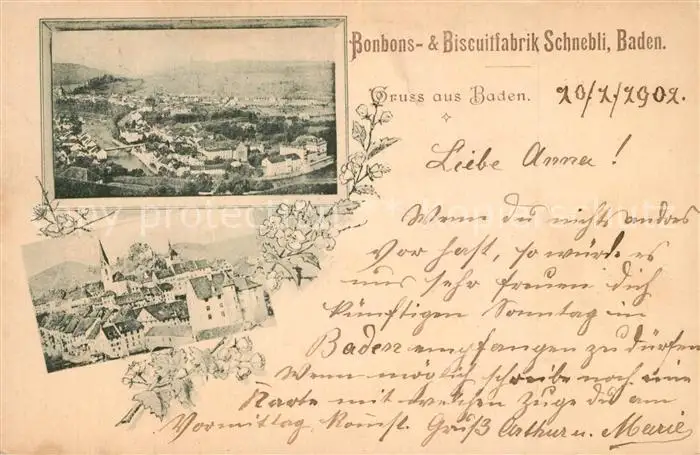 Bonbons- & Biscuitfabrik Schnebli, Baden.
Gruss aus Baden.
20/2/1902.
Liebe Anna!
Wenn du nichts anders
vor hast, so würde es
uns sehr freuen dich
künftigen Sonntag in
Baden empfangen zu dürfen
Wenn möglich schreibe noch eine
Karte mit welchen Zuge du am
Vormittag kommst. Gruß Arthur u. Marie